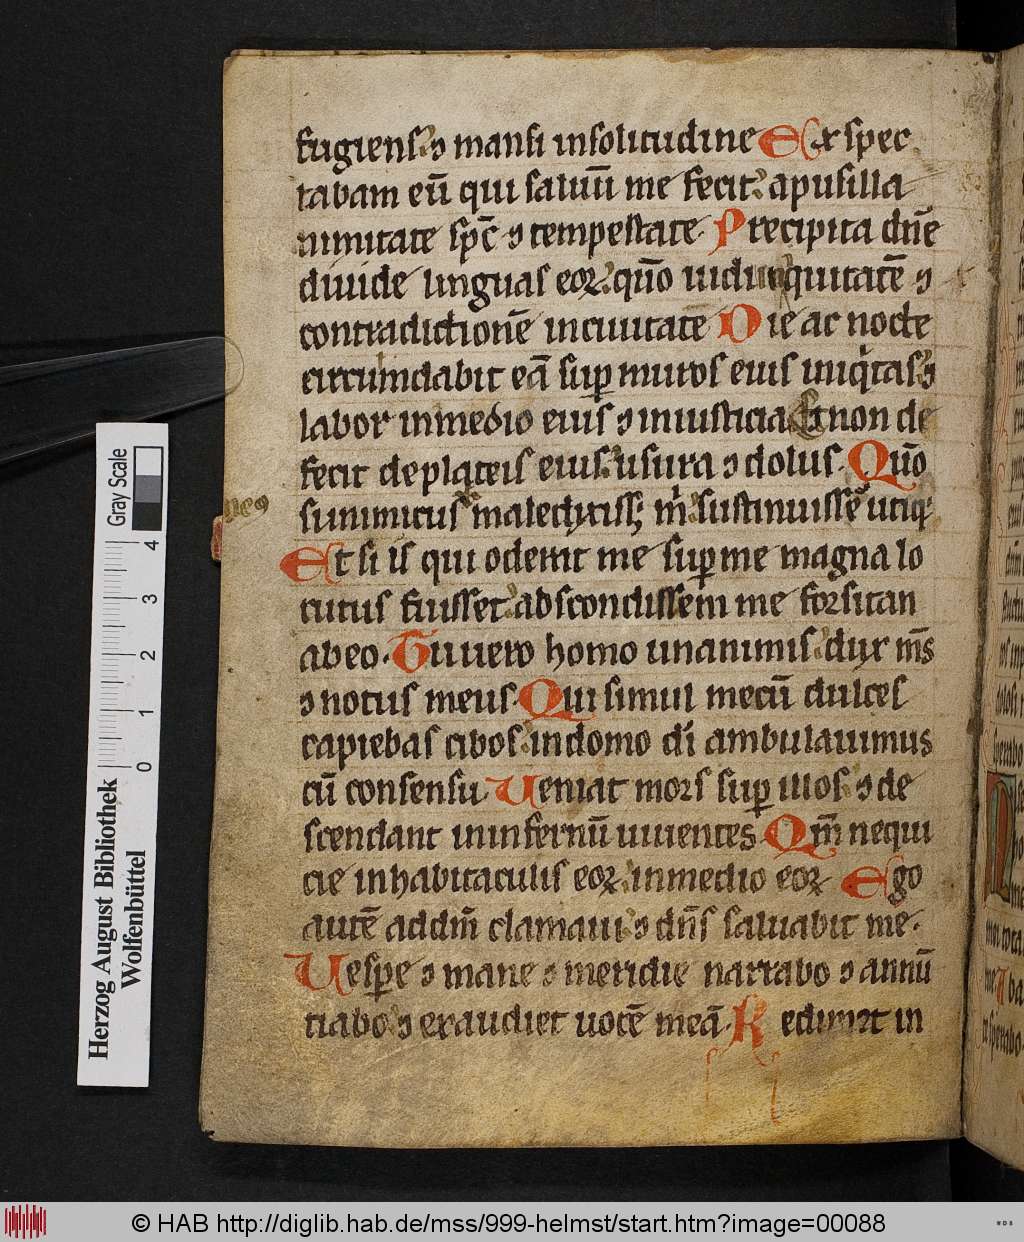 fugiens ⁊ mansi insolitudine Exspec
tabam eū qui saluū me fecit apusilla
nimitate sp̄c ⁊ tempestate Precipita dn̄e
diuide linguas eoꝝ quō uidi iniquitatē ⁊
contradictionē inciuitate Die ac nocte
circumdabit eā suꝑ muros eius iniq̇tas ⁊
labor inmedio eius ⁊ iniusticia Et non de
fecit deplateis eius usura ⁊ dolus Quō
si inimicus
Et si is qui oderat me suꝑ me magna lo
cutus fuisset abscondissem me forsitan
abeo Tu uero homo unanimis dux m̄s
⁊ notus meus Qui simul mecū dulces
capiebas cibos indomo dī ambulauimus
cū consensu Ueniat mors suꝑ illos ⁊ de
scendant ininfernū uiuentes Qm̄ nequi
cie inhabitaculis eoꝝ inmedio eoꝝ Ego
autē addm̄ clamaui ⁊ dn̄s saluabit me
Uesꝑe ⁊ mane ⁊ meridie narrabo ⁊ annū
ciabo ⁊ exaudiet uocē meā Redimet in
Gray Scale
0 1 2 3 4
Herzog August Bibliothek
Wolfenbüttel
© HAB http://diglib.hab.de/mss/999-helmst/start.htm?image=00088